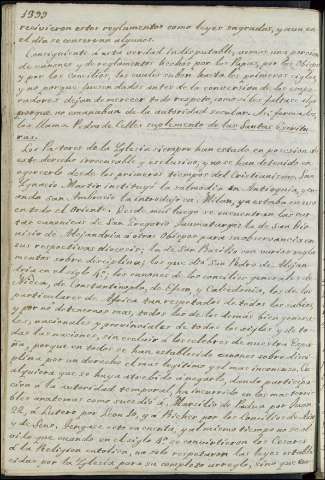 1999
recivieron estos reglamentos como leyes sagradas, y aun en
el dia se conservan algunos.
Consiguiente á esta verdad indisputable, vemos una porcion
de canones y de reglamentos hechos por los Papas, por los Obispos
y por los Concilios, los cuales suben hasta los primeros siglos,
y no porque fueron dados antes de la conversion de los empe-
radores dejan de merecer todo respeto, como si les faltase algo
porque no emanaban de la autoridad secular. Asi, formados,
los llama Pedro de Celles suplemento de las Santas Escritu-
ras.
Los Pastores de la Iglesia siempre han estado en posesion de
este derecho irrevocable y esclusivo, y no se han detenido en
egercerlo desde los primeros tiempos del Cristianismo. San
Ignacio Martir instituyó la salmodia en Antioquia, y cu-
ando San Ambrosio la introdujo en Milan, ya estaba en uso
en todo el Oriente. Desde muy luego se encuentran las car-
tas canonicas de San Gregorio Taumaturgo; la de San Dio-
nisio de Alejandria a otros Obispos para su observancia en
sus respectivas diocesis; la de San Basilio con varios regla-
mentos sobre disciplina; los que dió San Pedro de Alejan-
dria en el siglo 4º; los canones de los concilios generales de
Nicea, de Constantinopla, de Efeso, y Calcedonia, los de los
particulares de Africa tan respetados de todos los sabios,
y por no detenernos mas, todos los de los demás bien genera-
les, nacionales y provinciales de todos los siglos y de to-
das las naciones, sin escluir á los celebres de nuestra Espa-
ña, porque en todos se han establecido canones sobre disci-
plina por un derecho el mas legitimo y el mas inconcuso. Cu-
alquiera que se haya atrevido a negarlo, dando participa-
cion á la autoridad temporal, ha incurrido en los mas terri-
bles anatemas como sucedió á Marsilio de Padua por Juan
22, á Lutero por Leon 10, y a Richer por los Concilios de Aix
y de Sens. Tengase esto en cuenta, y al mismo tiempo no se ol-
vide que cuando en el siglo 4º se convirtieron los Cesares
á la Religion catolica, no solo respetaron las leyes estable-
cidas por la Iglesia para su completo arreglo, sino que